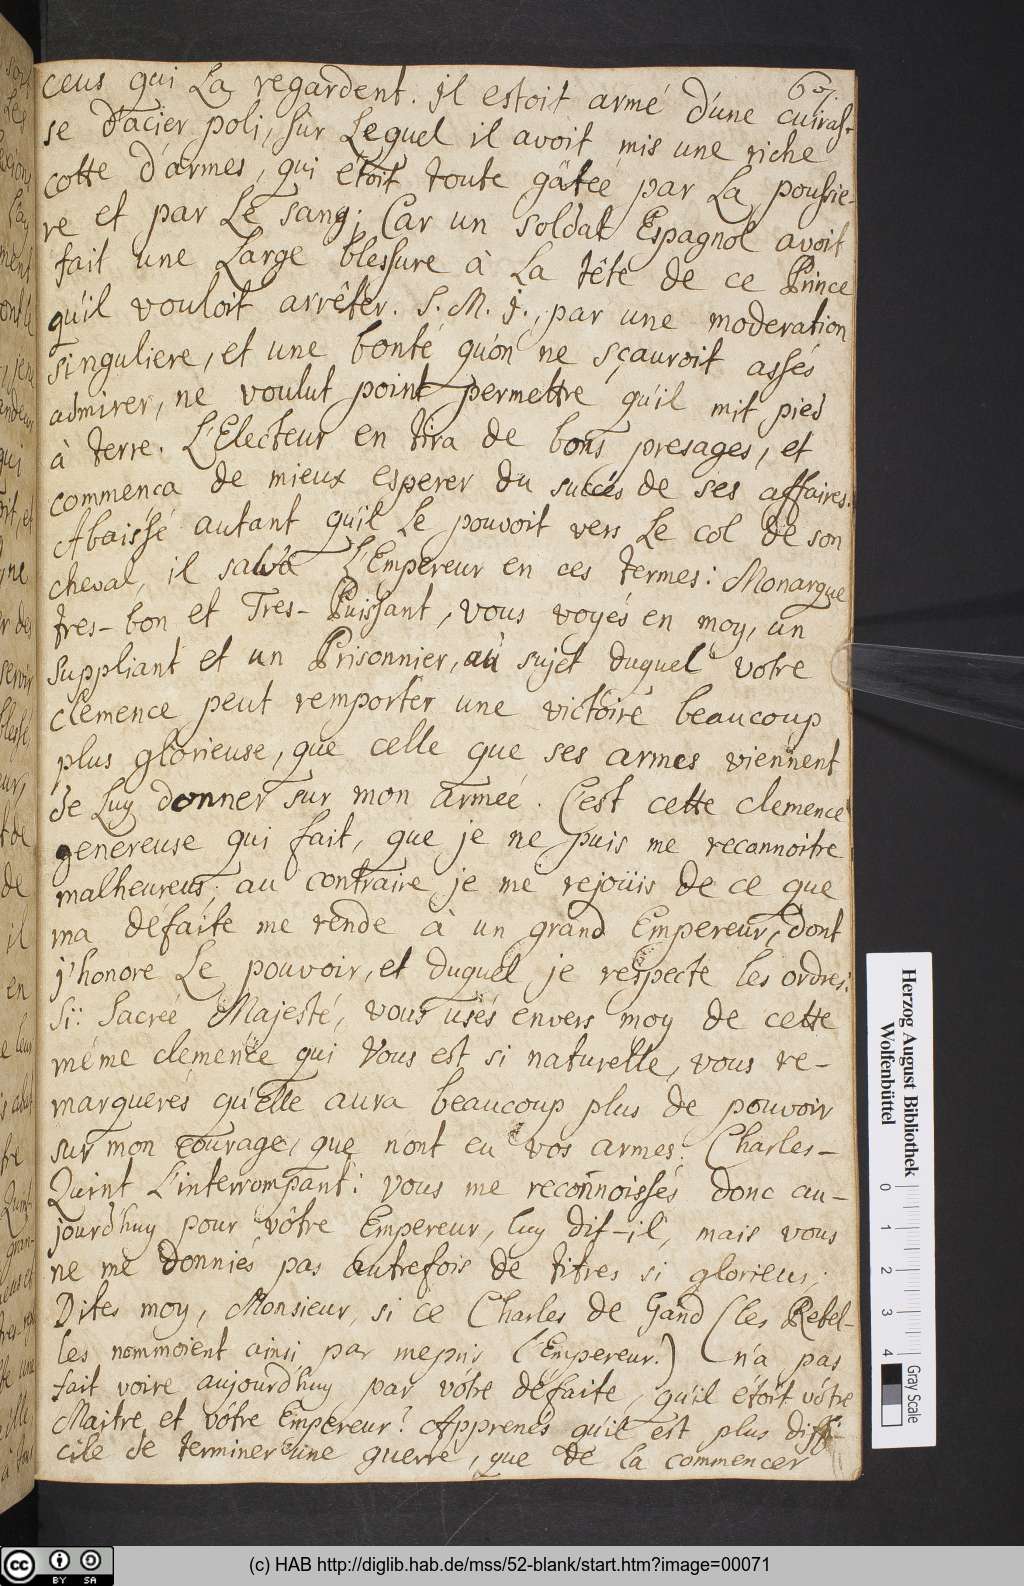 ceus qui La regardent. Il estoit armé d'une cuiras-
se d'acier poli, sur Lequel il avoit mis une riche
cotte d'armes, qui étoit toute gâteé par La poussie-
re et par Le sang; Car un soldat Espagnol avoit
fait une Large blessure à La tête de ce Prince
qu'il vouloit arrêter. S. M. J., par une moderation
singuliere, et une bonté qu'on ne sçauroit assés
admirer, ne voulut point permettre qu'il mit pied
à terre. L'Electeur en tira de bons presages, et
commenca de mieux esperer du succés de ses affaires.
Abaissé autant qu'il Le pouvoit vers Le col de son
cheval, il salüa L'Empereur en ces termes: Monarque
tres-bon et Tres-Puissant, vous voyés en moy, un
suppliant et un Prisonnier, au sujet duquel votre
clemence peut remporter une victoire beaucoup
plus glorieuse, que celle que ses armes viennent
de Luy donner sur mon armeé. C'est cette clemence
genereuse qui fait, que je ne puis me reconnoitre
malheureus; au contraire je me rejoüis de ce que
ma défaite me rende à un grand Empereur, dont
j'honore Le pouvoir, et duquel je respecte les ordres:
Si: Sacreé Majesté, vous usés envers moy de cette
même clemence qui Vous est si naturelle, vous re-
marqueres qu'Elle aura beaucoup plus de pouvoir
sur mon courage, que n'ont eu vos armes. Charles-
Quint L'interrompant: vous me reconnoissés donc au-
jourd'huy pour vôtre Empereur, luy dit-il, mais vous
ne me donniés pas autrefois de titres si glorieus;
Dites moy, Monsieur, si ce Charles de Gand (les Rebel-
les nommoient ainsi par mepris l'Empereur.) n'a pas
fait voire aujourd'huy par vôtre défaite, qu'il étoit vôtre
Maitre et vôtre Empereur? Apprenés qu'il est plus diffi-
cile de terminer une guerre, que de la commencer
Herzog August Bibliothek
Wolfenbüttel
0 1 2 3 4
Gray Scale
BY SA
(c) HAB http://diglib.hab.de/mss/52-blank/start.htm?image=00071